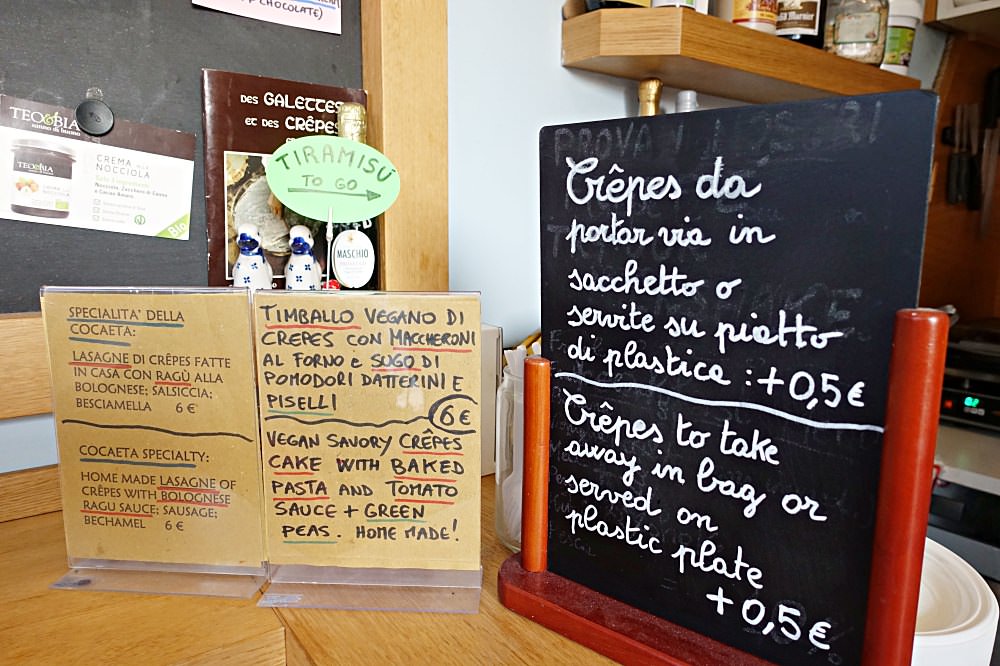 CHOCOLATE)
TEO&BIA
sanno di buono
CREMA ALLA
NOCCIOLA
TEO&BIA
Bio
DES GALETTES
ET DES CRÊPES
TIRAMISÚ
TO GO
MASCHIO
SPECIALITA' DELLA
COCAETA:
LASAGNE DI CRÊPES FATTE
IN CASA CON RAGÙ ALLA
BOLOGNESE; SALSICCIA;
BESCIAMELLA 6 €
COCAETA SPECIALTY:
HOME MADE LASAGNE OF
CRÊPES WITH BOLOGNESE
RAGU SAUCE; SAUSAGE;
BECHAMEL 6 €
TIMBALLO VEGANO DI
CREPES CON MACCHERONI
AL FORNO E SUGO DI
POMODORI DATTERINI E
PISELLI
6 €
VEGAN SAVORY CRÊPES
CAKE WITH BAKED
PASTA AND TOMATO
SAUCE + GREEN
PEAS. HOME MADE!
PROVA I
Crêpes da
portar via in
sacchetto o
servite su piatto
di plastica : +0,5€
Crêpes to take
away in bag or
served on
plastic plate
+0,5€